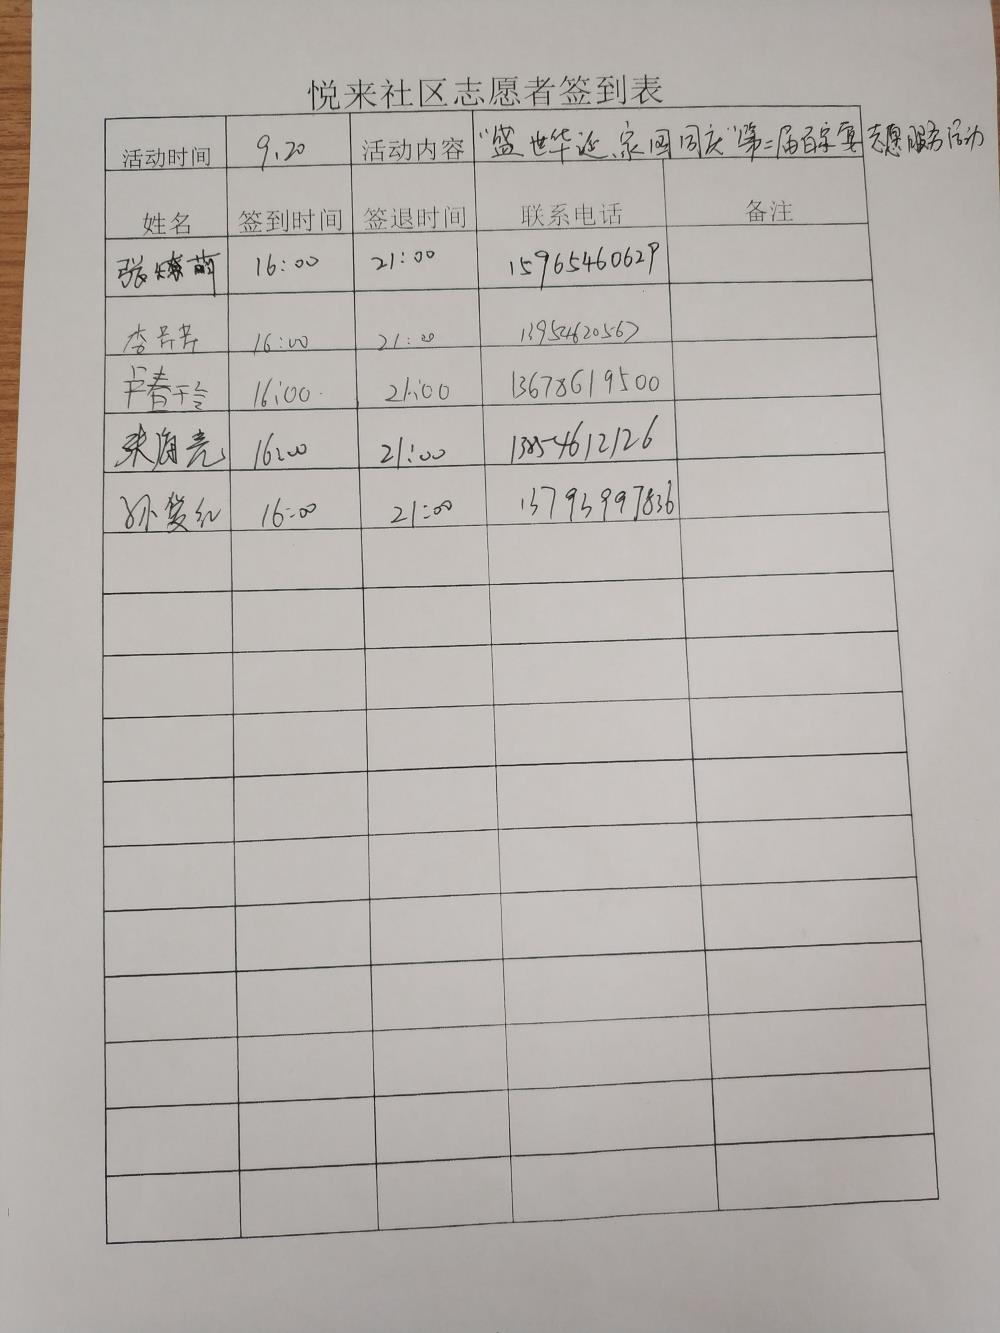 悦来社区志愿者签到表
活动时间 9.20 活动内容 "盛世华诞、家国同庆"第二届百家宴志愿服务活动
姓名 签到时间 签退时间 联系电话 备注
张燎萌 16:00 21:00 15965460629
李芹芹 16:00 21:00 13954620567
卢春玲 16:00 21:00 13678619500
张海亮 16:00 21:00 13854612126
孙爱红 16:00 21:00 13793997836